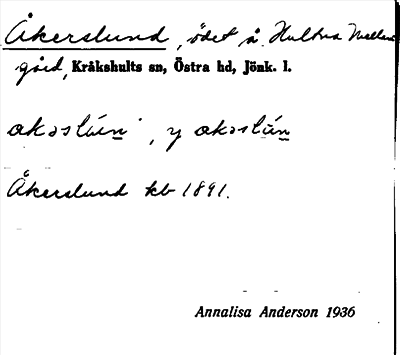 Åkerslund, ödet å. Hultna Mellan
gård, Kråkshults sn, Östra hd, Jönk. l.
akəslún, y akəslún
Åkerslund kb 1891.
Annalisa Anderson 1936